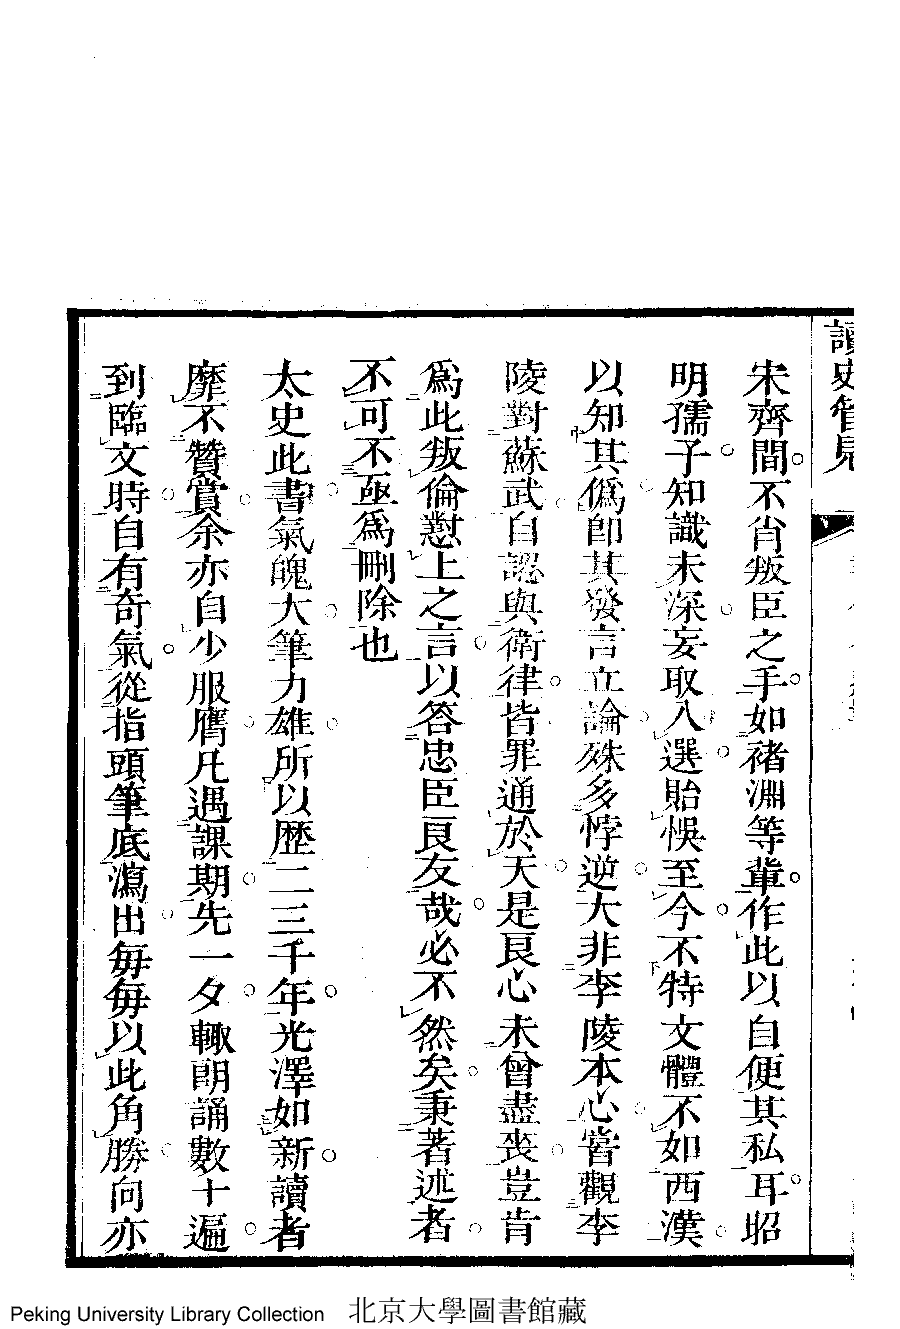 讀史管見
宋齊間不肖叛臣之手如褚淵等輩作此以自便其私耳昭
明孺子知識未深妄取入選貽悞至今不特文體不如西漢
以知其僞卽其發言立論殊多悖逆大非李陵本心嘗觀李
陵對蘇武自認與衛律皆罪通於天是良心未曾盡喪豈肯
爲此叛倫懟上之言以答忠臣良友哉必不然矣秉著述者
不可不亟爲刪除也
太史此書氣醜大筆力雄所以歷二三千年光澤如新讀者
靡不贊賞余亦自少服膺凡遇課期先一夕輙朗誦數十遍
到臨文時自有奇氣從指頭筆底瀉出每每以此角勝向亦
Peking University Library Collection 北京大學圖書館藏